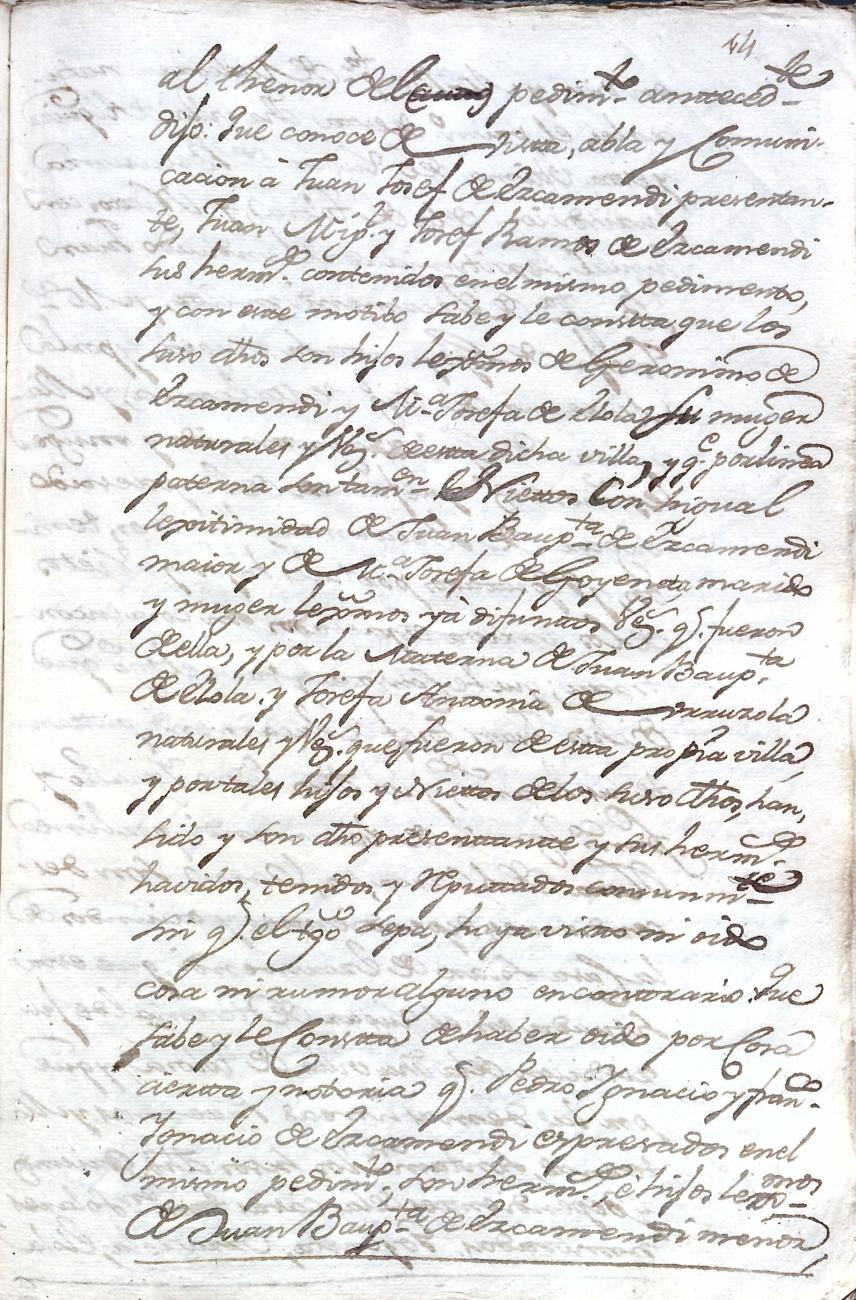 44
al thenor del pedim.to anteced.te
dijo: Que conoce de vista, abla y Comuni-
cacion à Juan Josef de Ezcamendi presentan-
te, Juan Mig.l y Josef Ramos de Ezcamendi
sus herm.s contenidos en el mismo pedimento,
y con este motibo sabe y le constta que los
suso dhos son hijos lexmos de Geronimo de
Ezcamendi y M.a Josefa de Elola su muger
naturales y Vez.s de esta dicha villa, y q.e por linea
paterna son tam.en Nietos Con higual
lexitimidad de Juan Baup.ta de Ezcamendi
maior y de M.a Josefa de Goyeneta marido
y muger lexmos yà difuntos Vez.s q.e fueron
de ella, y por la Materna de Juan Baup.ta
de Elola y Josefa Antonia de
naturales y Vez.s que fueron de esta propia villa,
y por tales hijos y Nietos de los suso dhos, han
sido y son dho presentante y sus herm.s
havidos, tenidos y Reputtados comunm.te
sin q.e el tgo sepa, haya visto ni oido
cosa ni rumor alguno en contrario: Que
sabe y le Constta de haber oido por Cosa
cierta y notoria q.e Pedro Ygnacio y Fran.co
Ygnacio de Ezcamendi expresados en el
mismo pedim.to, son herm.s, è hijos lexmos
de Juan Baup.ta de Ezcamendi menor,